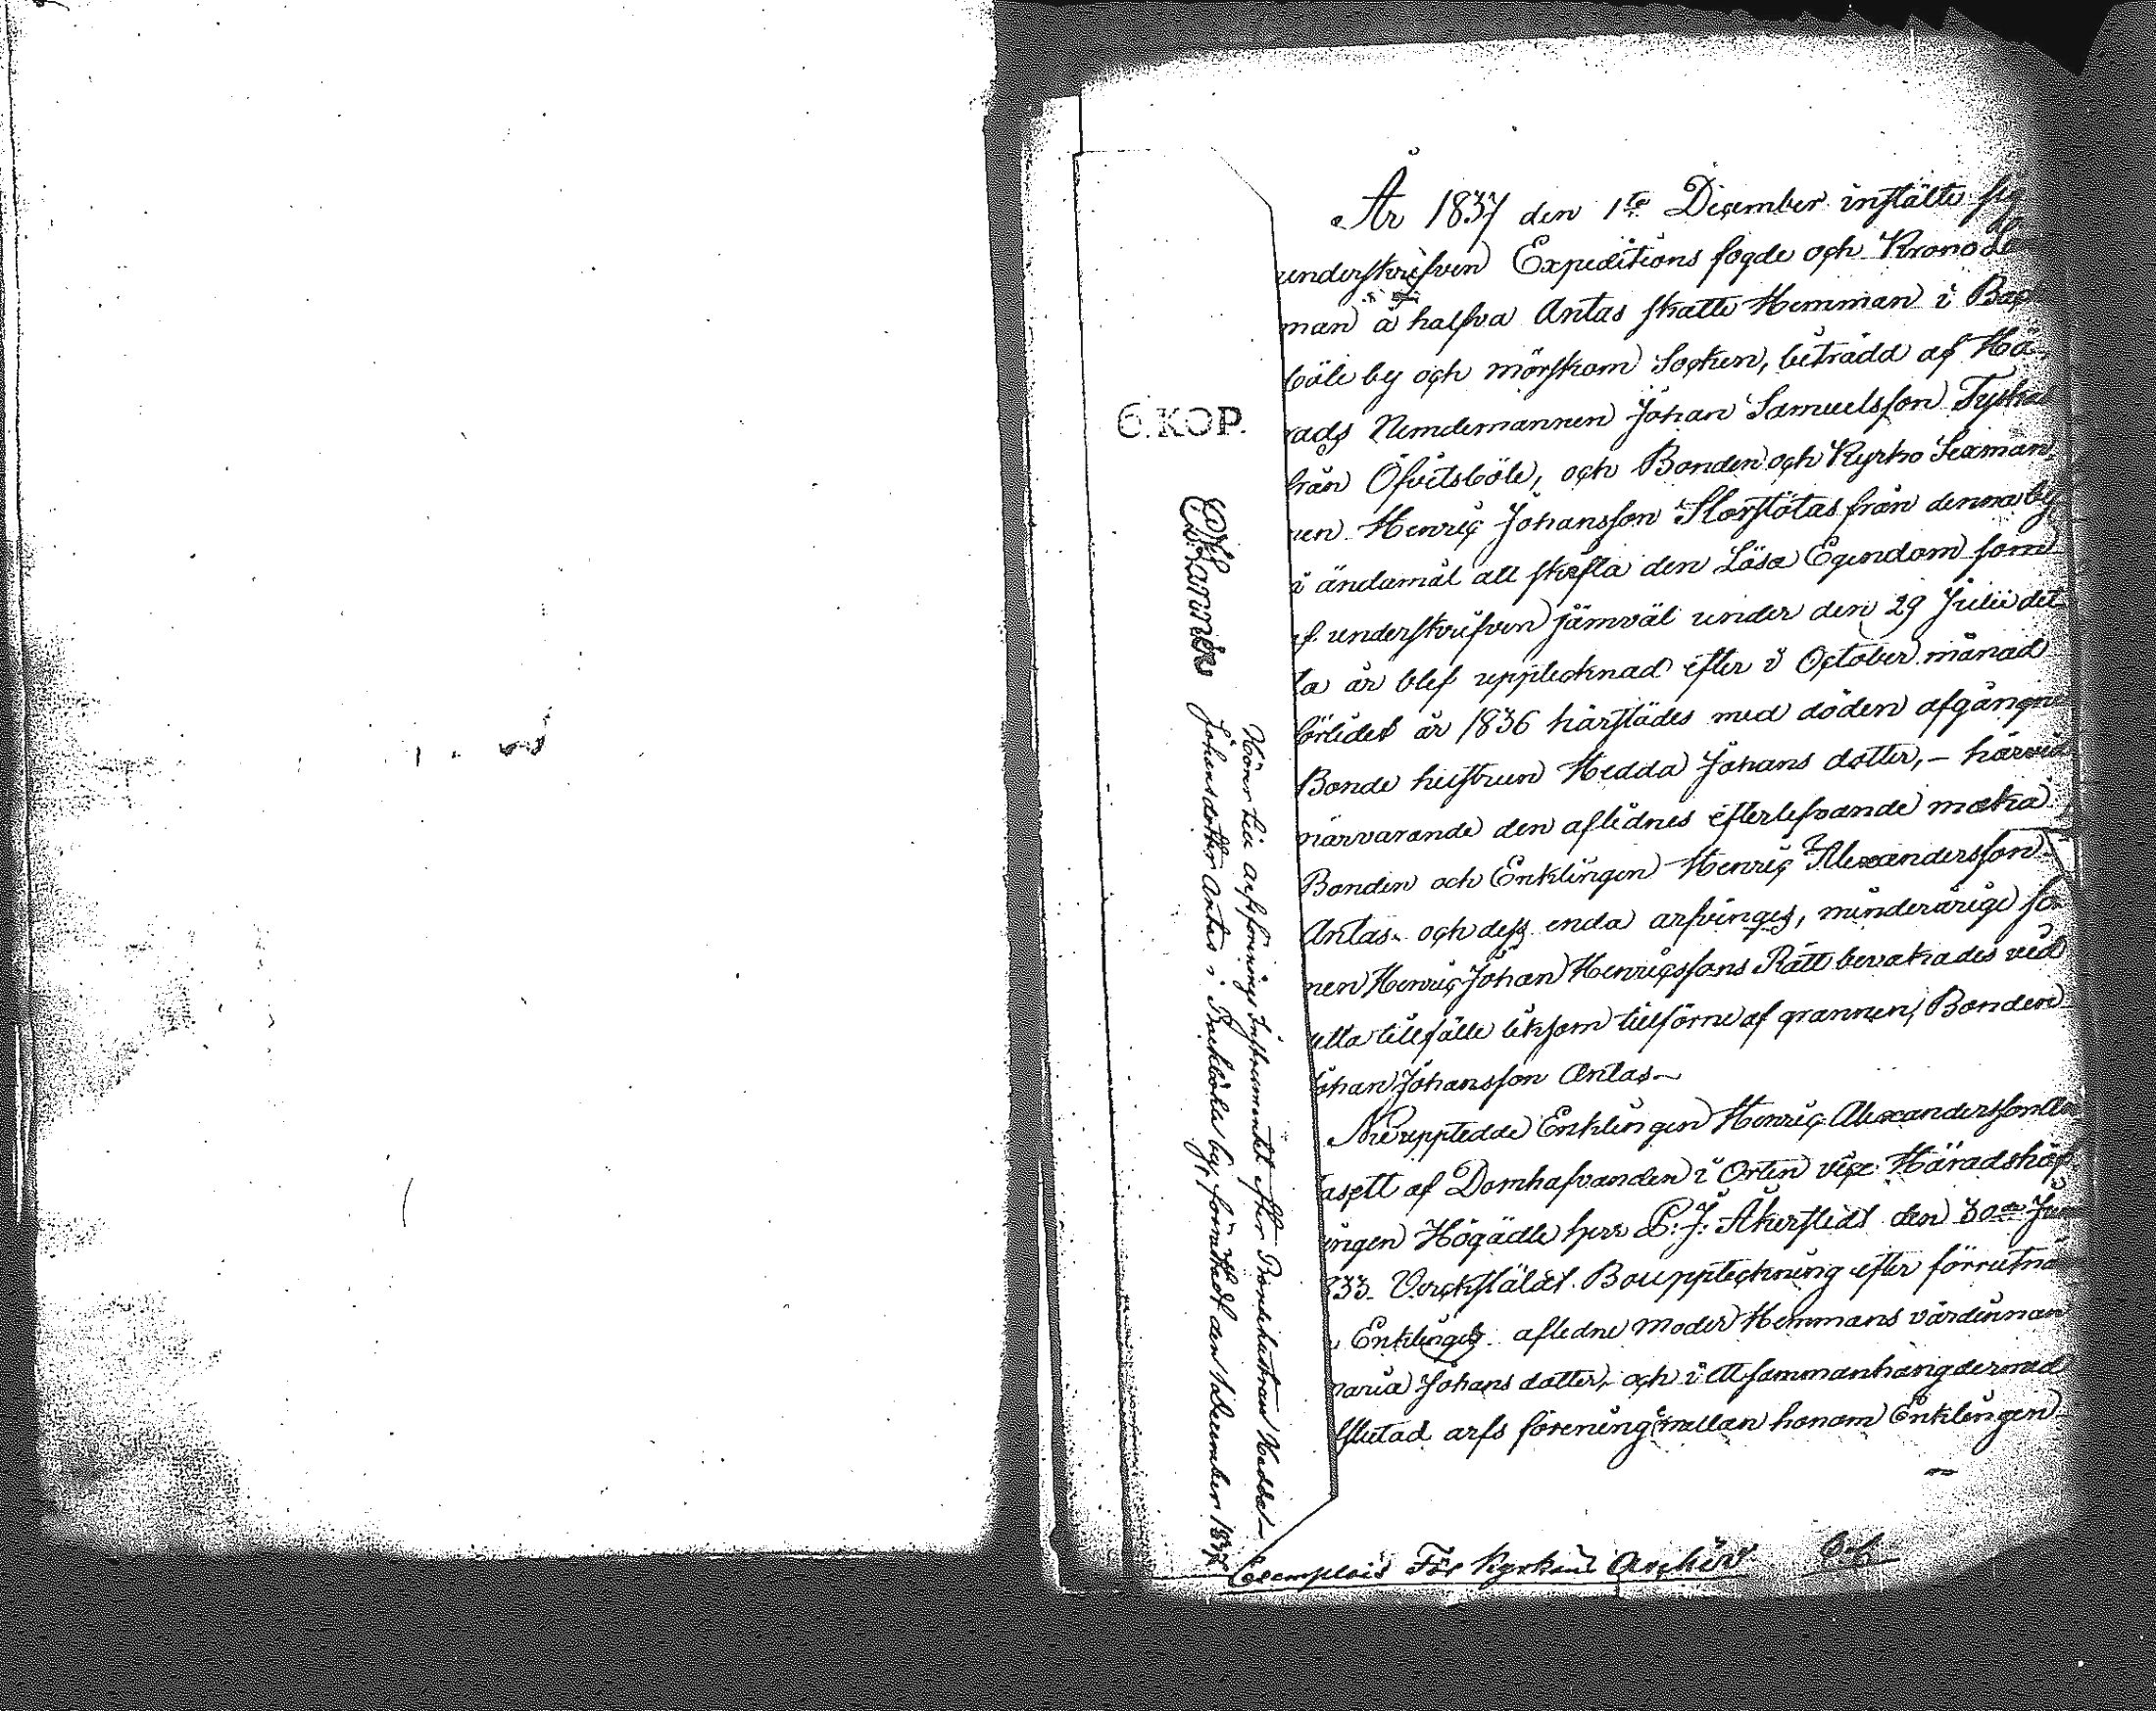 År 1837 den 1ste December instälte sig
underskrifven Expeditions fogde och Krono Lä
man å halfva Antas skatte Hemman i Back
böle by och Mörskom Socken, biträdd af Hä-
rads Nemdemannen Johan Samuelsson Tyskas
från Öfvitsböle, och Bonden och Kyrko Sexman,
nen Henric Johansson Storstötas från denna by
i ändamål att skifta den Lösa Egendom som
af underskrifven jämväl under den 29 Julii det
ta år blef upptecknad efter i October månad
förledet år 1836 härstädes med döden afgångne
Bonde hustrun Hedda Johans dotter, - härvid
närvarande den aflidnes efterlefvande maka
Bonden och Enklingen Henric Alexandersson
Antas och dess enda arfvinges, minderårige so
nen Henric Johan Henricssons Rätt bevakades vid
etta tillfälle liksom tillförne af grannen, Bonden
Johan Johansson Antas
Nu upptedde Enklingen Henric Alexandersson An
tas ett af Domhafvanden i Orten vice Häradshöf
ingen Högädle herr P. J. Åkerstedt den 30de Jun
833 Verckstäldt Bouppteckning efter förrutnä
Enklinges afledne moder Hemmans värdinnan
Maria Johans dotter, och i ett sammanhang dermed
slutad arfs förening mellan honom Enklingen
6. KOP.
Hörer till arfsförenings Instrumentet efter Bondehustrun Hedda
Johansdotter Antas i Backböle by, förrättadt den 1 December 1837
Exemplar För Kyrkans Archiv